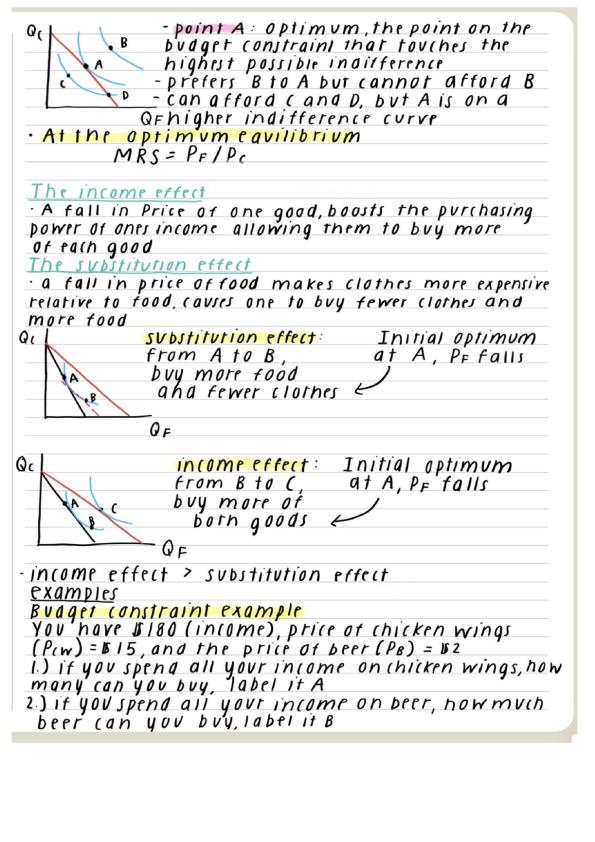 Qc
- point A: optimum, the point on the
budget constraint that touches the
highest possible indifference
B
A
C
D
- prefers B to A but cannot afford B
- can afford C and D, but A is on a
QF higher indifference curve
· At the optimum equilibrium
MRS = PF/Pc
The income effect
· A fall in Price of one good, boosts the purchasing
power of ones income allowing them to buy more
of each good
The substitution effect
· a fall in price of food makes clothes more expensive
relative to food, causes one to buy fewer clothes and
more food
Qc substitution effect: Initial optimum
from A to B, at A, PF falls
A buy more food
B and fewer clothes
QF
Qc income effect: Initial optimum
from B to C, at A, PF falls
A C buy more of
B both goods
QF
- income effect > substitution effect
examples
Budget constraint example
You have $180 (income), price of chicken wings
(Pcw) = $15, and the price of beer (PB) = $2
1.) if you spend all your income on chicken wings, how
many can you buy, label it A
2.) if you spend all your income on beer, how much
beer can you buy, label it B